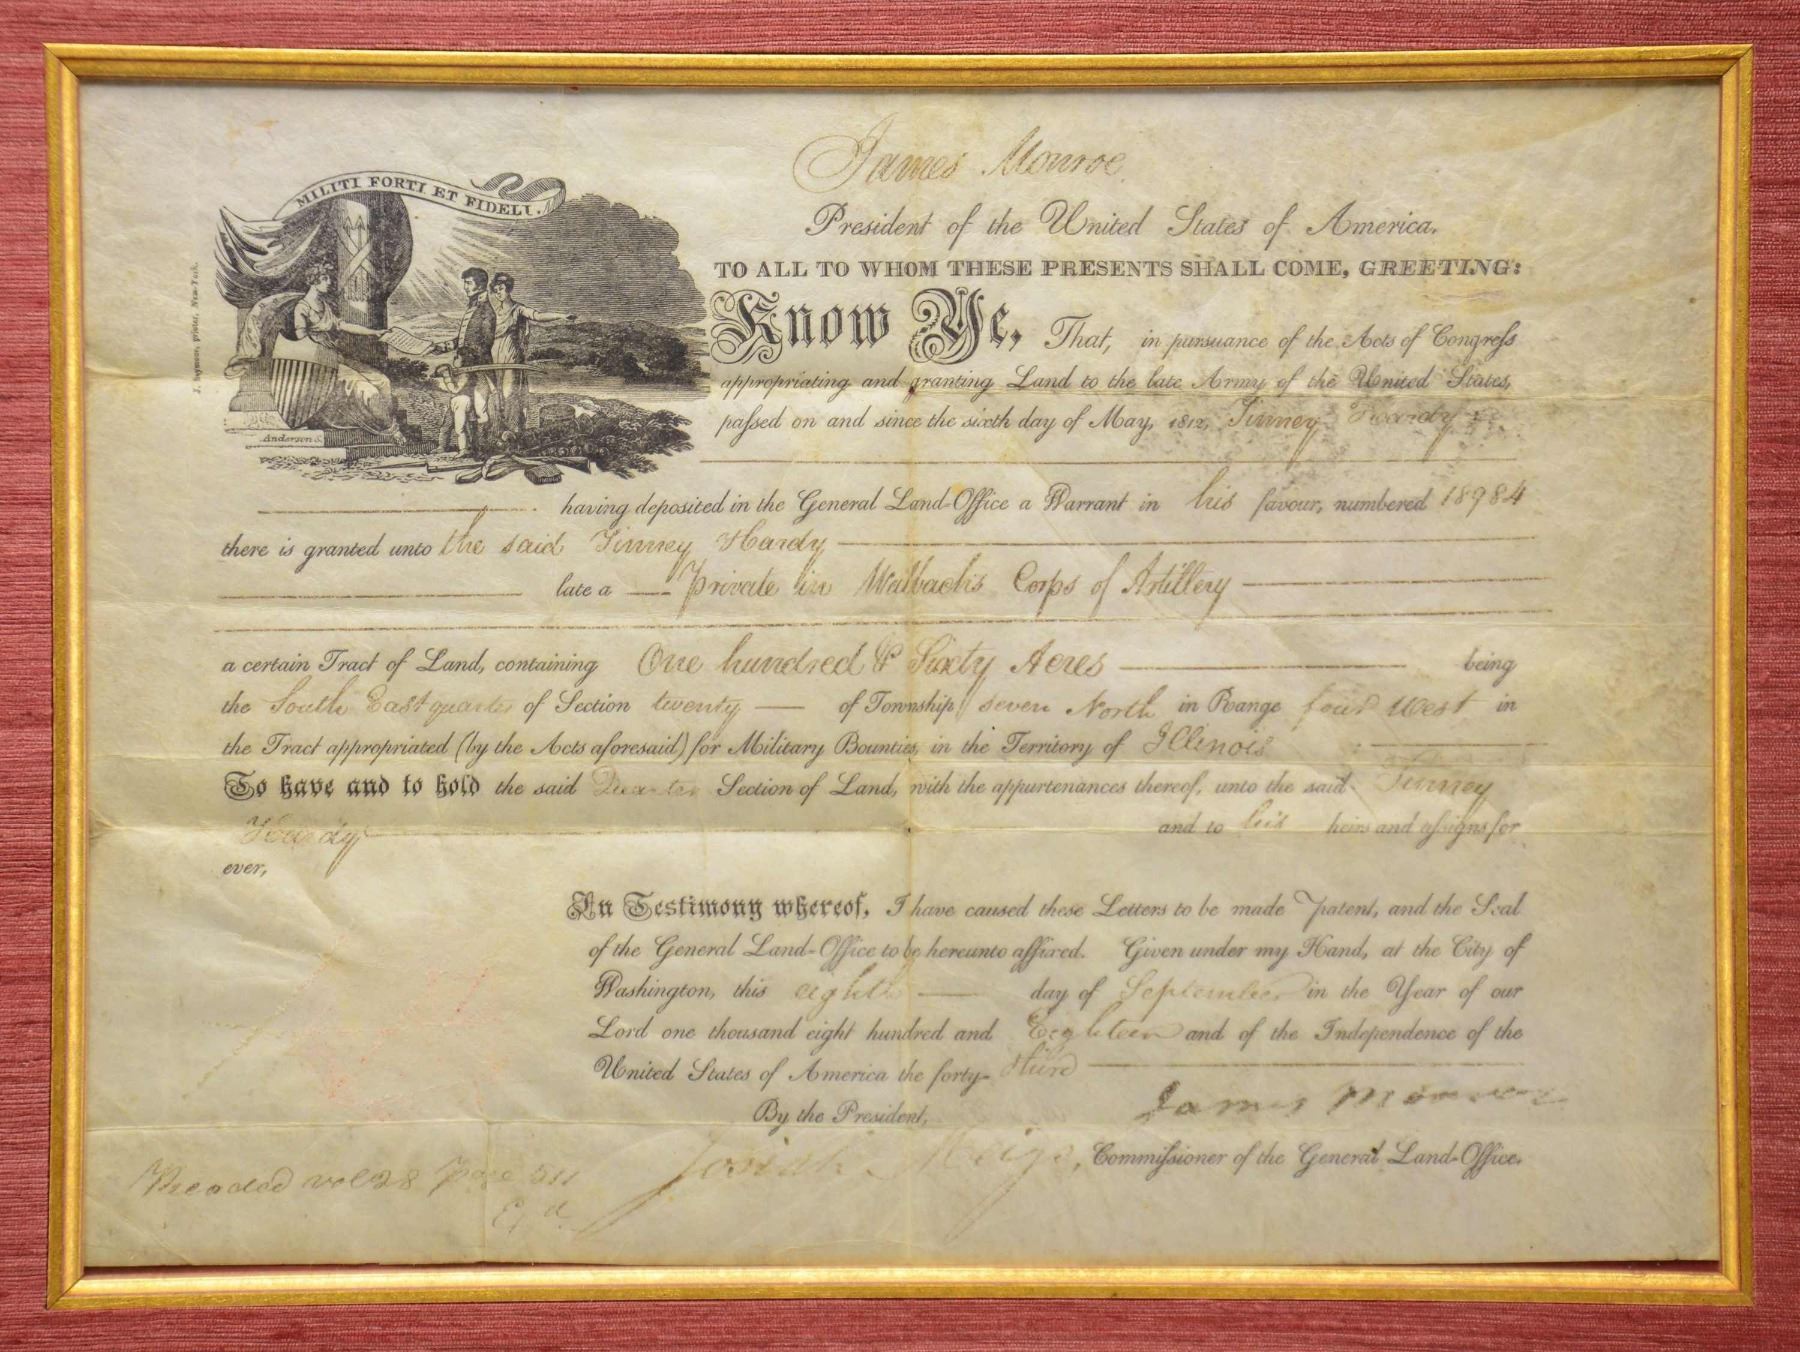 James Monroe
President of the United States of America.
TO ALL TO WHOM THESE PRESENTS SHALL COME, GREETING:
MILITI FORTI ET FIDELI.
J. Seymour, printer, New-York.
Anderson S.
Know Ye, That, in pursuance of the Acts of Congress
appropriating and granting Land to the late Army of the United States,
passed on and since the sixth day of May, 1812, Finney Hardy
having deposited in the General Land-Office a Warrant in his favour, numbered 18984
there is granted unto the said Finney Hardy
late a Private in Walbach's Corps of Artillery
a certain Tract of Land, containing One hundred & Sixty Acres being
the South East quarter of Section twenty of Township seven North in Range four West in
the Tract appropriated (by the Acts aforesaid) for Military Bounties, in the Territory of Illinois
To have and to hold the said Quarter Section of Land, with the appurtenances thereof, unto the said Finney
Hardy and to his heirs and assigns for
ever,
In Testimony whereof, I have caused these Letters to be made Patent, and the Seal
of the General Land-Office to be hereunto affixed. Given under my Hand, at the City of
Washington, this eighth day of September in the Year of our
Lord one thousand eight hundred and Eighteen and of the Independence of the
United States of America the forty-third
James Monroe
By the President,
Josiah Meigs, Commissioner of the General Land-Office.
Recorded vol 28 Page 511